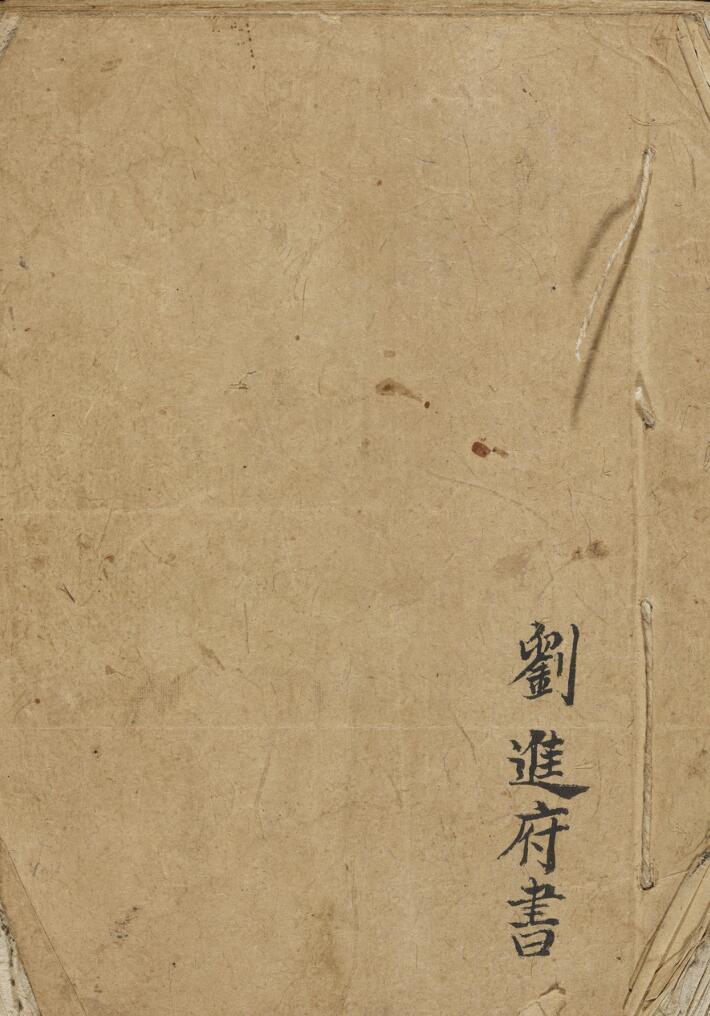 劉進府書